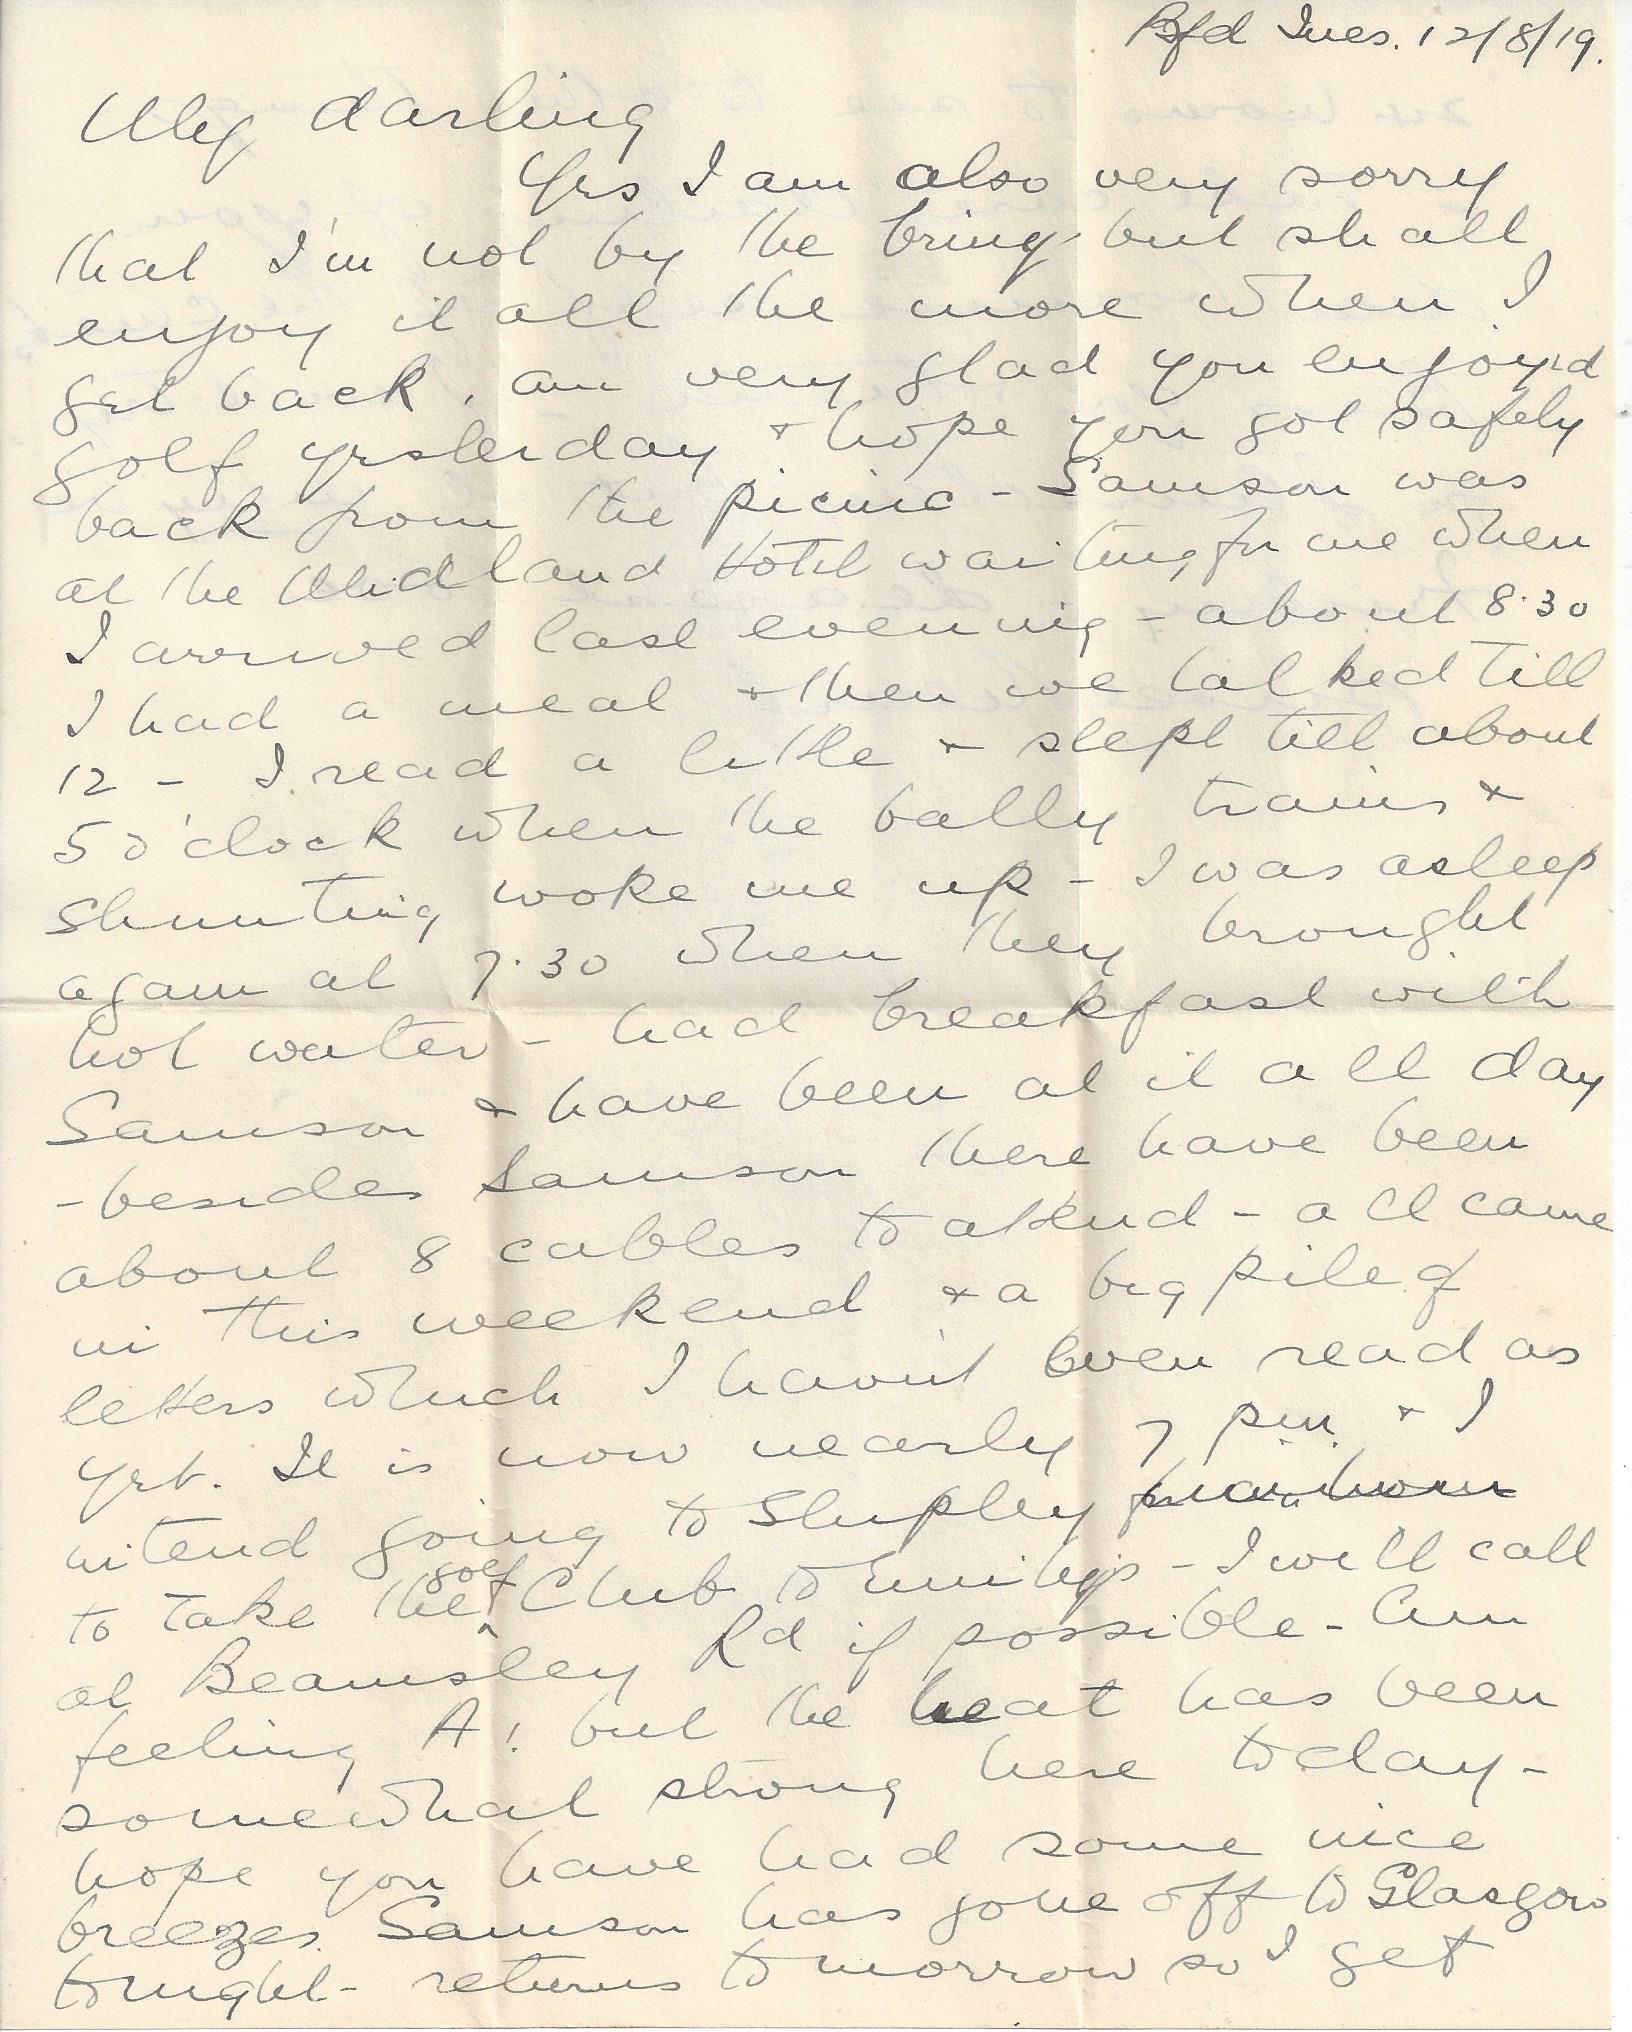 Bfd Tues. 12/8/19.
My darling
Yes I am also very sorry
that I'm not by the briny but shall
enjoy it all the more when I
get back. am very glad you enjoyed
golf yesterday & hope you got safely
back from the picnic - Samson was
at the Midland Hotel waiting for me when
I arrived last evening - about 8.30
I had a meal & then we talked till
12 - I read a little & slept till about
5 o'clock when the bally trains &
shunting woke me up - I was asleep
again at 7.30 when they brought
hot water - had breakfast with
Samson & have been at it all day
- besides Samson there have been
about 8 cables to attend - all came
in this weekend & a big pile of
letters which I havn't even read as
yet. It is now nearly 7 pm & I
intend going to Shipley
to take the golf Club to - I will call
at Beamsley Rd if possible - Am
feeling A1 but the heat has been
somewhat strong here today -
hope you have had some nice
breezes. Samson has gone off to Glasgow
tonight - returns tomorrow so I get